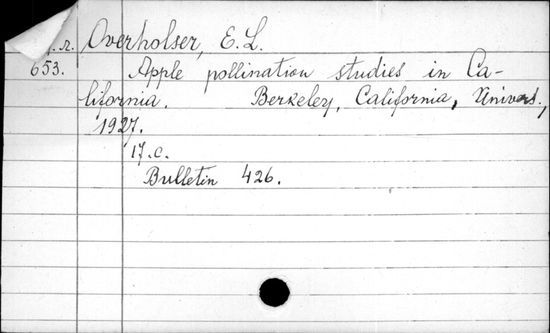 Overholser, E. L.
653. Apple pollination studies in Ca-
lifornia. Berkeley, California, Univers.,
1927.
17.c.
Bulletin 426.